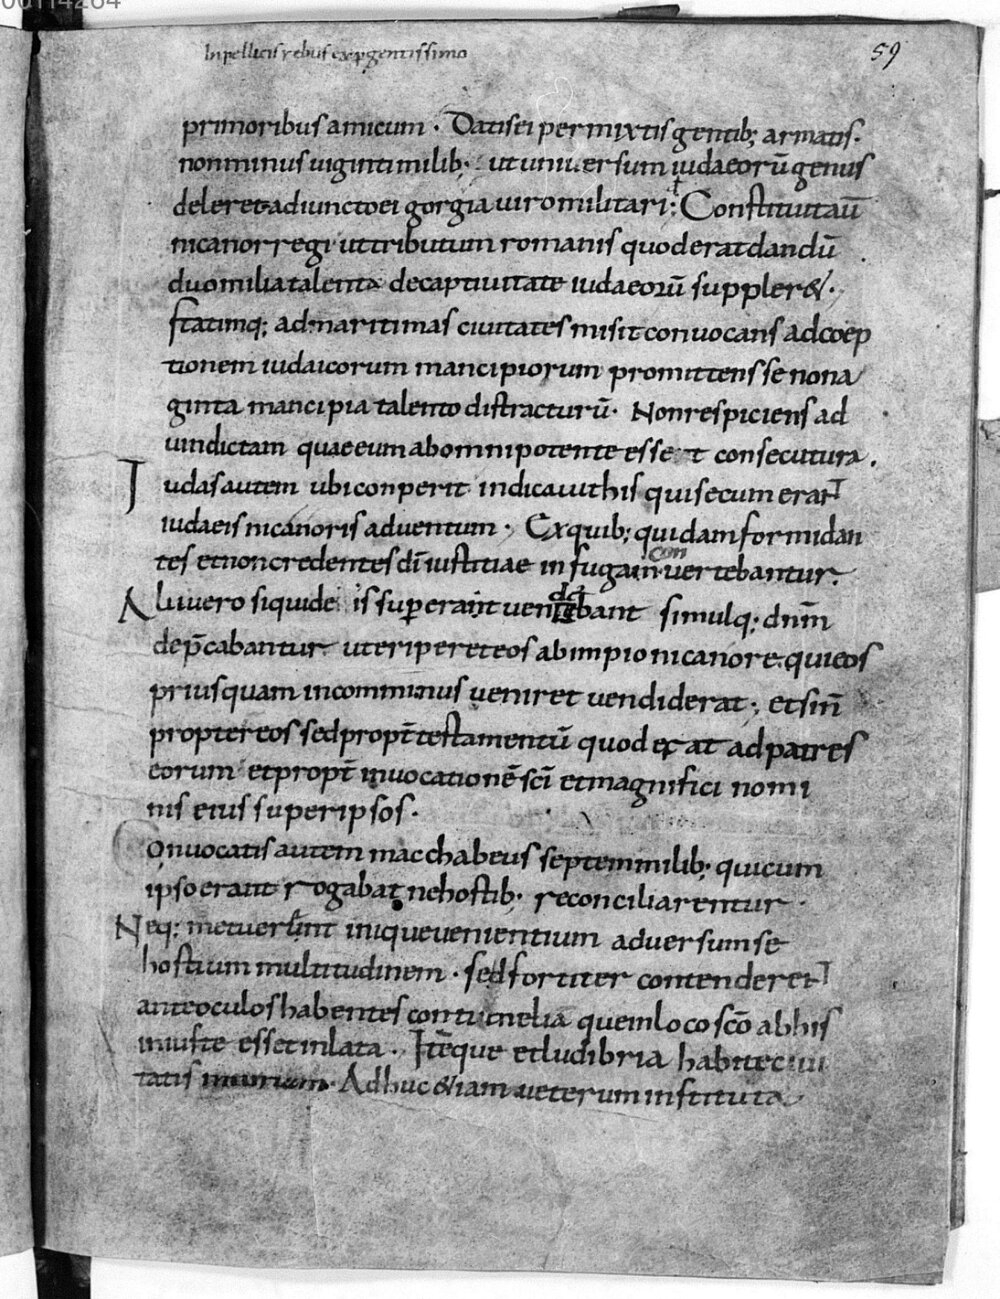 00114264
59
In pellicis rebus exp gentissimo
primoribus amicum · Datis ei permixtis gentib; armatis ·
non minus uiginti milib; ut uniuersum iudaeorū genus
deleret adiuncto ei gorgia uiro militari; Constituit aū
nicanor regi ut tributum romanis quod erat dandū
duo milia talenta de captiuitate iudaeorū suppler& ·
statimq; ad maritimas ciuitates misit conuocans ad coep
tionem iudaicorum mancipiorum promittens se nona
ginta mancipia talento distracturū · Non respiciens ad
uindictam quae eum ab omnipotente esset consecutura .
Iudas autem ubi conperit indicauit his qui secum erant
iudaeis nicanoris aduentum · Ex quib; quidam formidan
tes et non credentes dī iustitiae in fugam con uertebantur .
Alii uero si quid eis superat uendebant simulq; dnm̄
dep̄cabantur ut eriperet eos ab impio nicanore qui eos
priusquam in comminus ueniret uendiderat ; et si n̄
propter eos sed propt̄ testamentū quod erat ad patres
eorum et propt̄ inuocationē scī et magnifici nomi
nis eius super ipsos ·
Conuocatis autem macchabeus septem milib; qui cum
ipso erant rogabat ne hostib; reconciliarentur ·
Neq; metuerint inique uenientium aduersum se
hostium multitudinem · sed fortiter contenderent
ante oculos habentes contumeliā quem loco scō ab his
iniuste esset inlata · Itēque et ludibria habite ciui
tatis iniuriam · Adhuc &iam ueterum instituta